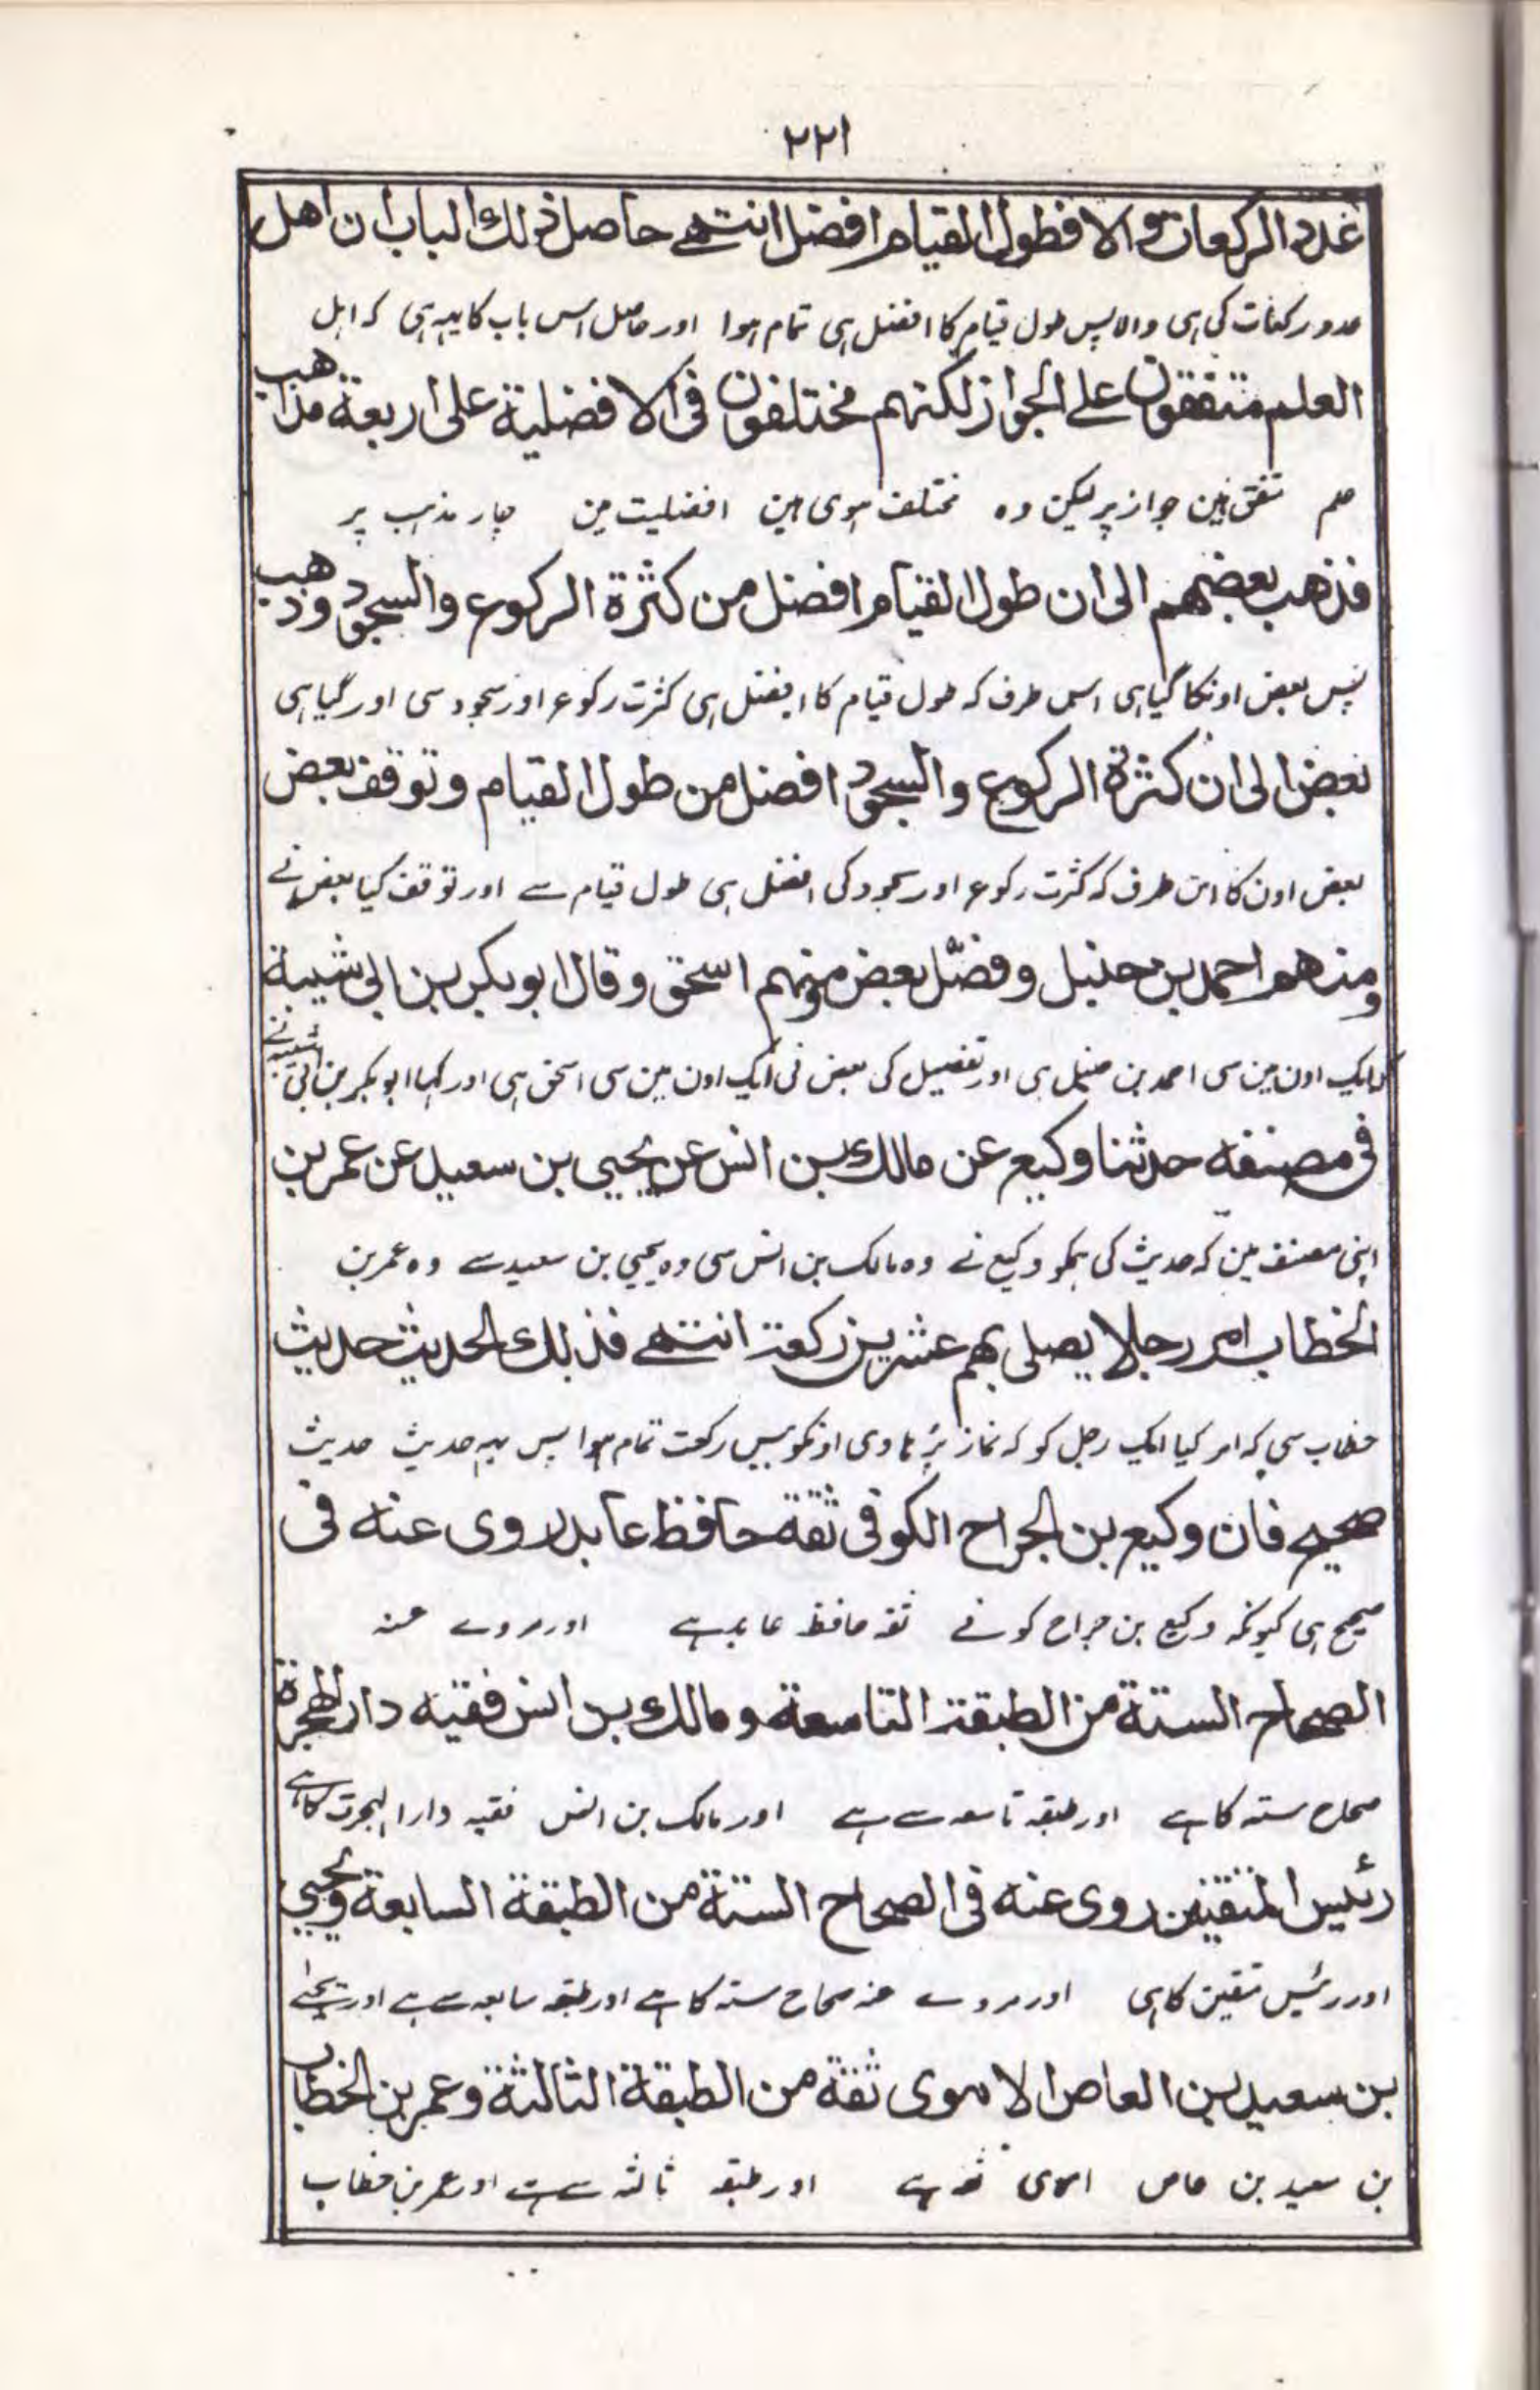 ٢٢١
عدد الركعات والا فطول القيام افضل انتهے حاصل ذلك الباب ان اهل
عدد رکعات کی ہی والا پس طول قیام کا افضل ہی تمام ہوا اور حاصل اس باب کا یہہ ہی کہ اہل
العلم متفقون علے الجواز لكنهم مختلفون فى الافضلية على اربعة مذاهب
علم متفق ہین جواز پر لیکن وہ مختلف ہوی ہین افضلیت مین چار مذہب پر
فذهب بعضهم الى ان طول القيام افضل من كثرة الركوع والسجود وذهب
پس بعض اونکا گیا ہی اس طرف کہ طول قیام کا افضل ہی کثرت رکوع اور سجود سی اور گیا ہی
بعض الى ان كثرة الركوع والسجود افضل من طول القيام وتوقف بعض
بعض اون کا اس طرف کہ کثرت رکوع اور سجود کی افضل ہی طول قیام سے اور توقف کیا بعض نے
ومنهم احمد بن حنبل وفصّل بعض ومنهم اسحق وقال ابو بكر بن ابى شيبة
کہ ایک اون مین سی احمد بن حنبل ہی اور تفصیل کی بعض نی ایک اون مین سی اسحق ہی اور کہا ابو بکر بن ابی شیبہ نے
فى مصنفه حدثنا وكيع عن مالك بن انس عن يحيى بن سعيد عن عمر بن
اپنی مصنف مین کہ حدیث کی ہمکو وکیع نے وہ مالک بن انس سی وہ یحیی بن سعید سے وہ عمر بن
الخطاب امر رجلا يصلى بهم عشرين ركعة انتهے فذلك الحديث حديث
خطاب سی کہ امر کیا ایک رجل کو کہ نماز پڑہا وی اونکو بیس رکعت تمام ہوا پس یہہ حدیث حدیث
صحيح فان وكيع بن الجراح الكوفى ثقة حافظ عابد روى عنه فى
صحیح ہی کیونکہ وکیع بن جراح کوفے ثقہ حافظ عابد ہے اور مروے عنہ
الصحاح الستة من الطبقة التاسعة ومالك بن انس فقيه دار الهجرة
صحاح ستہ کا ہے اور طبقہ تاسعہ سے ہے اور مالک بن انس فقیہ دار الہجرت کا ہے
رئيس المتقين روى عنه فى الصحاح الستة من الطبقة السابعة ويحيى
اور رئیس متقین کا ہی اور مروے عنہ صحاح ستہ کا ہے اور طبقہ سابعہ سے ہے اور یحیٰے
بن سعيد بن العاص الاموى ثقة من الطبقة الثالثة وعمر بن الخطاب
بن سعید بن عاص اموی ثقہ ہے اور طبقہ ثالثہ سے ہے اور عمر بن خطاب